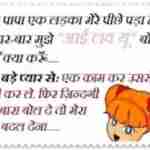 पापा एक लड़का मेरे पीछे पड़ा
बार-बार मुझे "आई लव यू" बो
क्या करूँ....
बड़े प्यार से: एक काम कर उसस
कर ले. फिर जिन्दगी
बारा बोल दे तो मेरा
बदल देना....